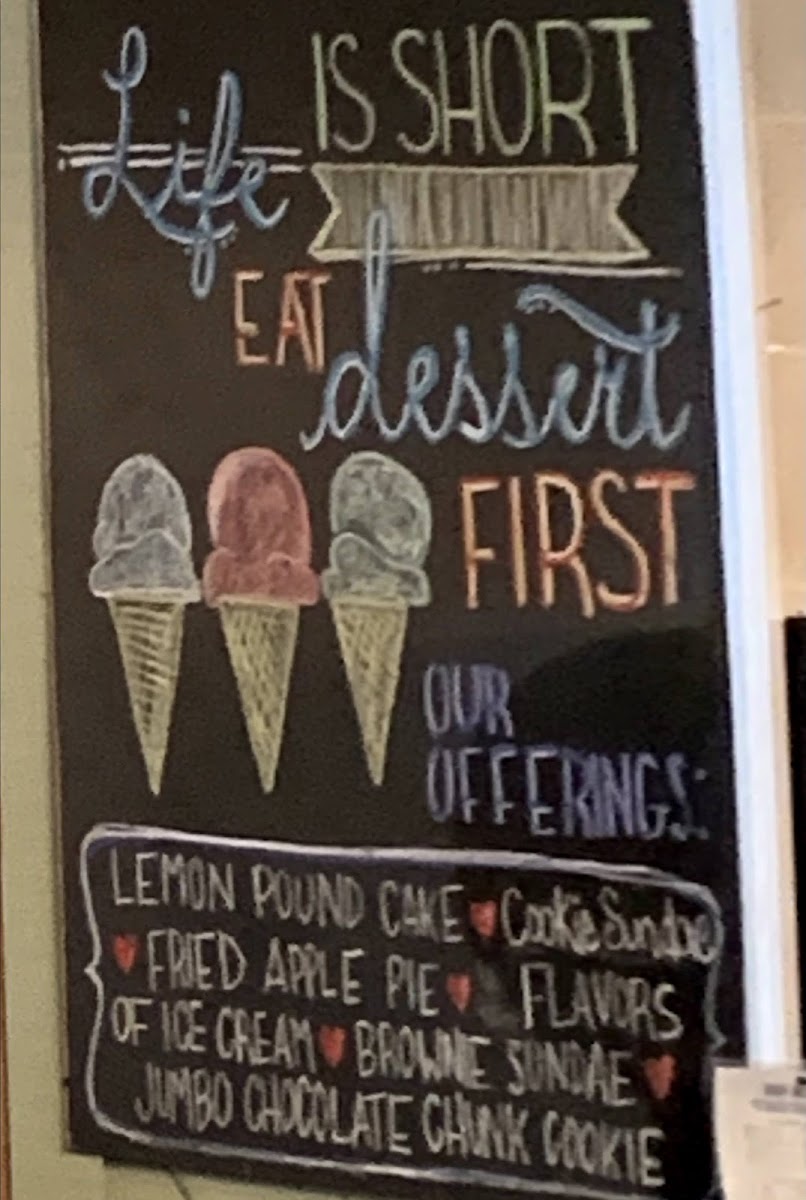 Life IS SHORT
EAT dessert
FIRST
OUR
OFFERINGS:
LEMON POUND CAKE ♥ Cookie Sundae
♥ FRIED APPLE PIE ♥ FLAVORS
OF ICE CREAM ♥ BROWNIE SUNDAE ♥
JUMBO CHOCOLATE CHUNK COOKIE